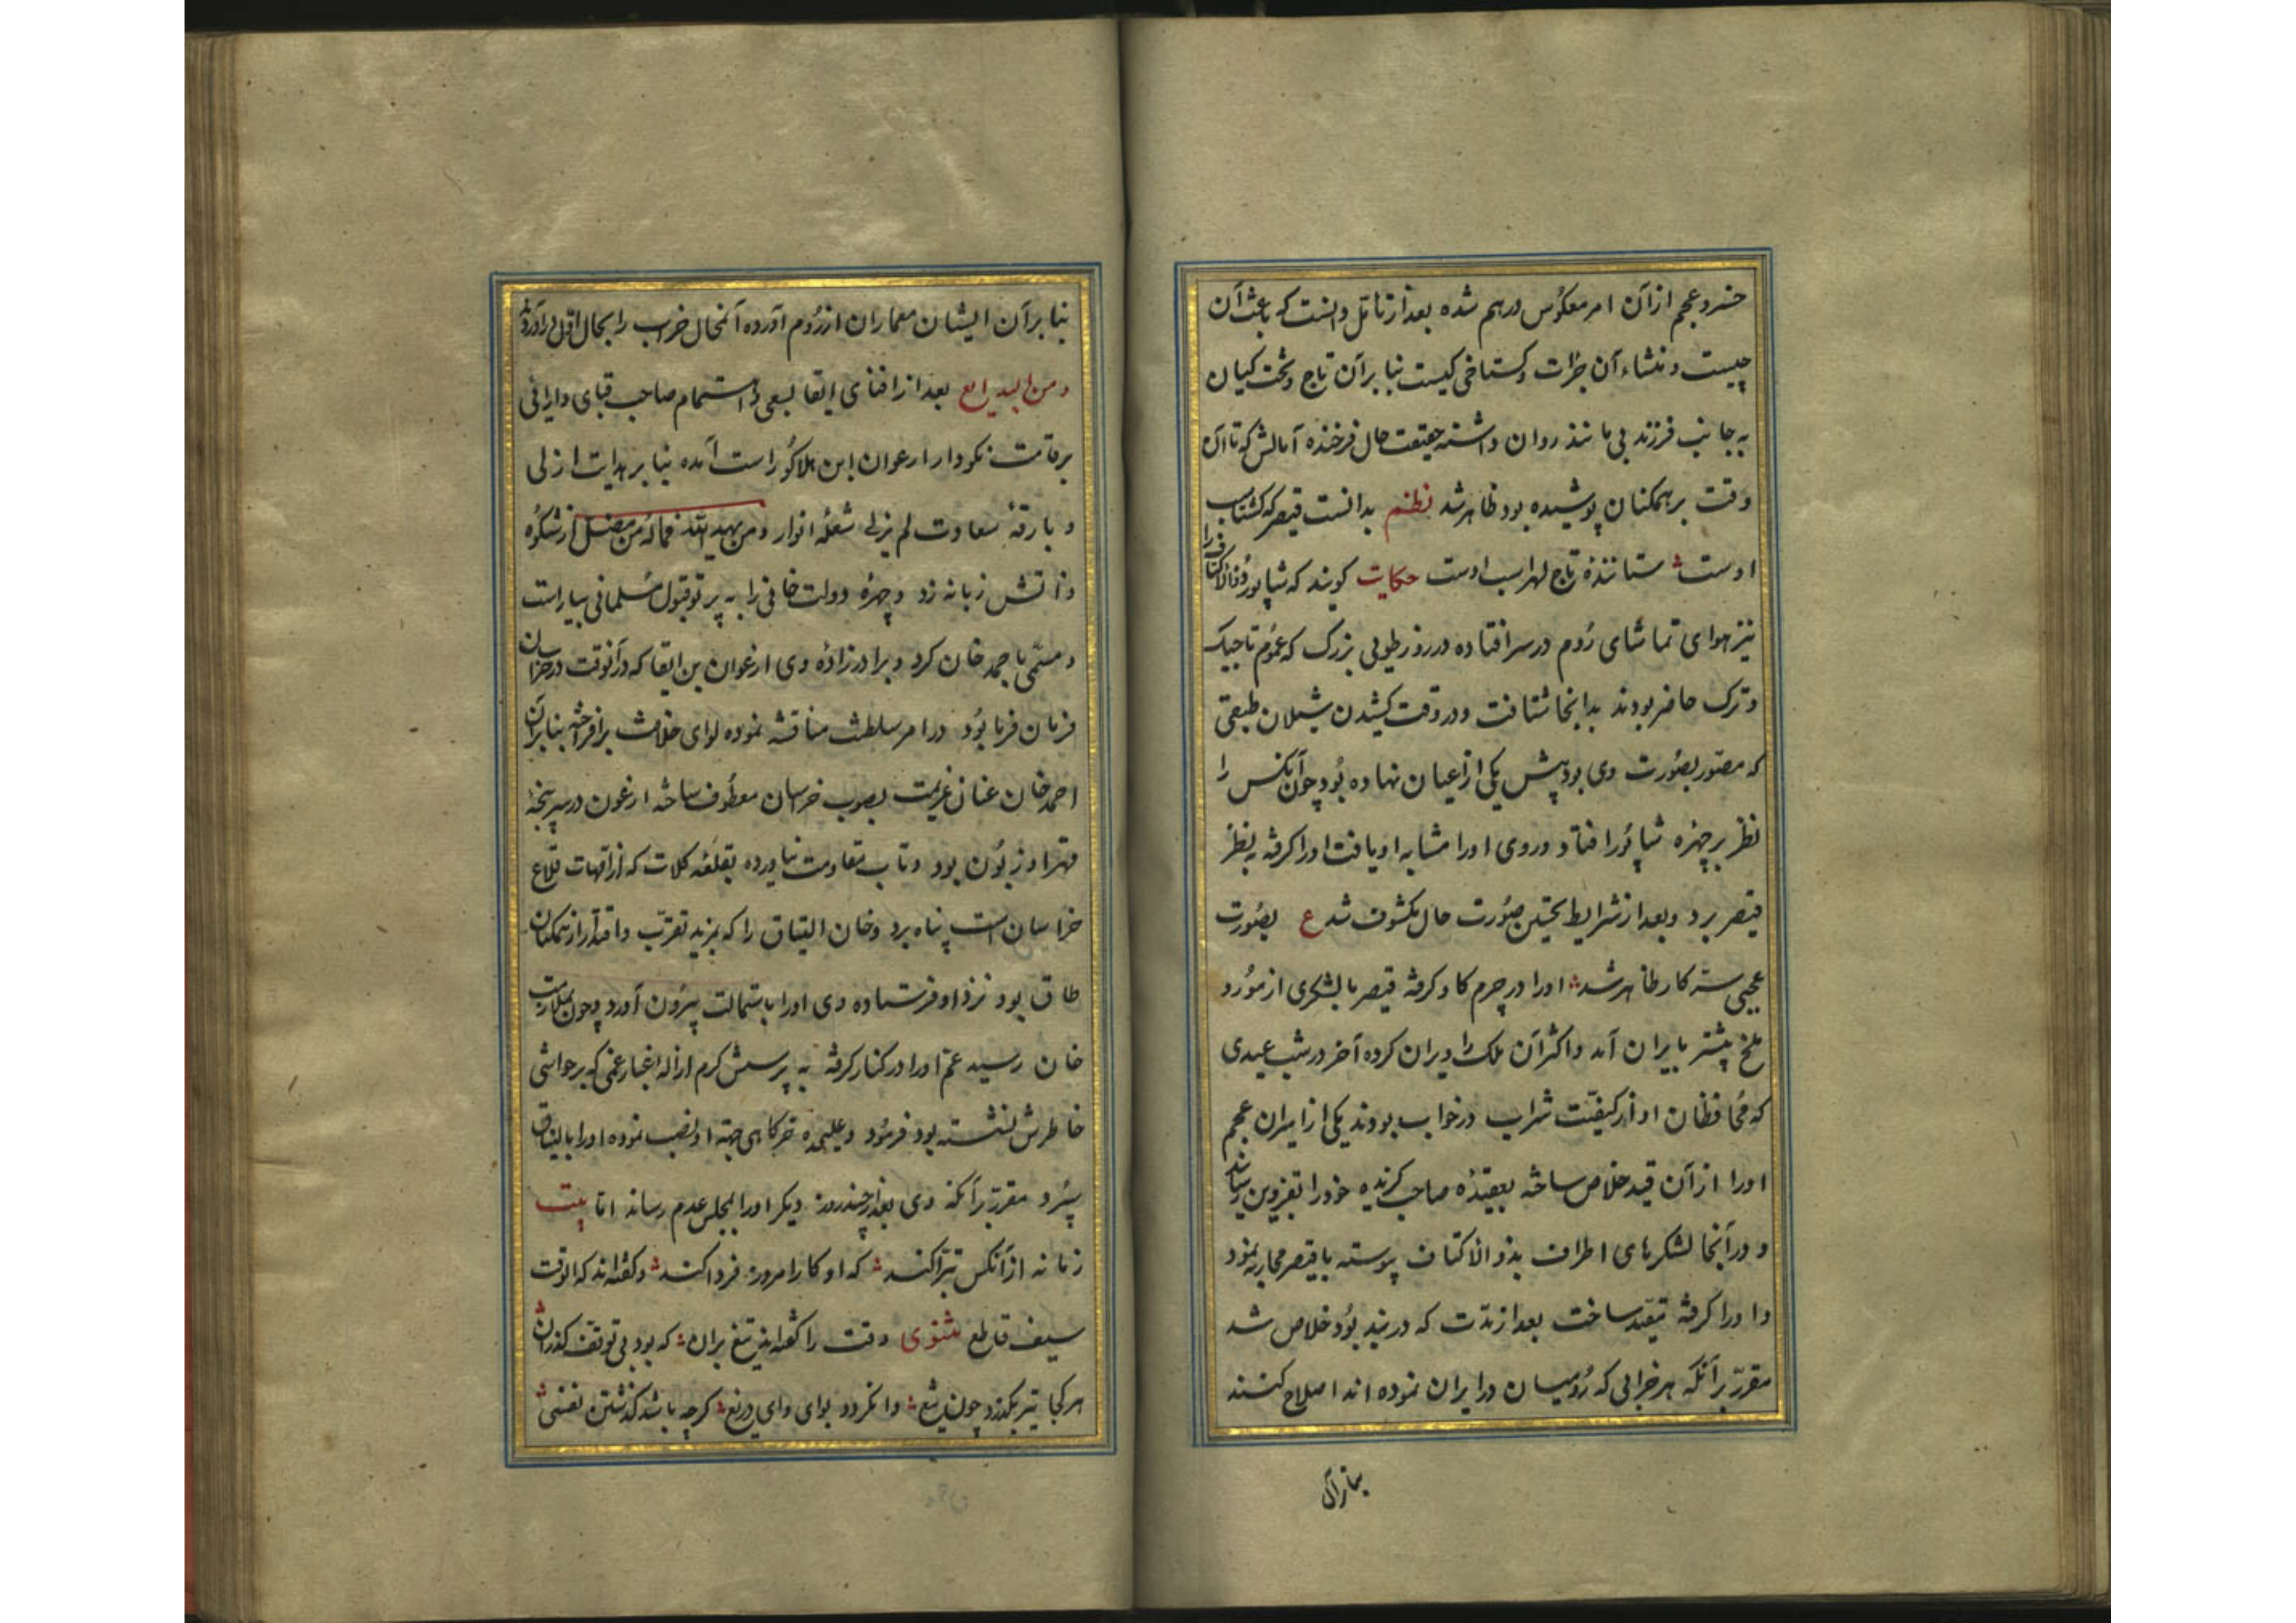 خسرو عجم ازآن امر معکوس درهم شده بعد از تامّل دانست که باعث آن
چیست و منشاء آن جرات و کستاخی کیست بنا برآن تاج و تخت کیان
به جانب فرزند بی مانند روان داشته حقیقت حال فرخنده آمالش که تا آن
وقت بر همکنان پوشیده بود ظاهر شد نظم بدانست قیصر که کشتاسب
اوست ستانندهٔ تاج لهراسب اوست حکایت کویند که شاپور ذوالاکتاف را
نیز هوای تماشای رُوم در سر افتاده در روز طویی بزرک که عموم تاجیک
و ترک حاضر بودند بدانجا شتافت و در وقت کشیدن شیلان طبقی
که مصوّر بصُورت وی بود پیش یکی از اعیان نهاده بُود چون آنکس را
نظر بر چهره شاپُور افتاد و روی او را مشابه او یافت او را کرفته به نظر
قیصر برد و بعد از شرایط تحقیق صُورت حال مکشوف شد ع بصُورت
عجبی سرّ کار ظاهر شد او را در چرم کاو کرفته قیصر با لشکری از مُور و
ملخ بیشتر بایران آمد و اکثر آن ملک را ویران کرده آخر در شب عیدی
که مُحافظان او از کیفیّت شراب در خواب بودند یکی از اسیران عجم
او را از آن قید خلاص ساخته بعقیدهٔ صاحب کزیده خود را بقزوین رساند
و در آنجا لشکرهای اطراف بذوالاکتاف پیوسته با قیصر محاربه نمود
و او را کرفته مقیّد ساخت بعد از مدّت که در بند بُود خلاص شد
مقرّر برآنکه هر خرابی که رُومیان در ایران نموده اند اصلاح کنند
بنابرآن
بنا برآن ایشان معماران از رُوم آورده آنمحال خراب را بحال اوّل درآوردند
و من البدایع بعد از افنای ابقا بسعی و اهتمام صاحب قبای دارائی
بر قامت نکودار ارغوان ابن هلاکُو راست آمده بنا بر هدایت ازلی
و بارقهٔ سعاوت لم یزلی شعلهٔ انوار و من یهد الله فماله من مضل از شکوُه
ذاتش زبانه زد و چهرهٔ دولت خانی را به پرتو قبول مُسلمانی بیاراست
و مسمّی باحمد خان کرد و برادرزادهٔ وی ارغوان بن ابقا که در آنوقت در خراسان
فرمان فرما بُود در امر سلطنت مناقشه نموده لوای خلافت برافراخته بنابرآن
احمد خان عنان عزیمت بصوب خراسان معطُوف ساخته ارغون در سرپنجهٔ
قهر او زبُون بود و تاب مقاومت نیاورده بقلعهٔ کلات که از امّهات قلاع
خراسان است پناه برد و خان الیناق را که بمزید تقرّب و اقتدار از همکنان
طاق بود نزد او فرستاده وی او را باستمالت بیرُون آورد و چون بملازمت
خان رسید عم او را در کنار کرفته به پرسش کرم ازالهٔ غبار غمی که بر حواشی
خاطرش نشسته بود فرمُود و علیحده خرکاهی جهة او نصب نموده او را بالیناق
سپُرد مقرّر برآنکه وی بعد از چند روز دیکر او را بمجلس عدم رساند امّا بیت
زمانه از آنکس تبرّا کند که او کار امروز فردا کند و کفته‌اند که الوقت
سیف قاطع مثنوی وقت را کفته‌اند تیغ بران که بود بی توقف کذران
هر کجا تیر بکذرد چون تیغ وانکردد بوای وای دریغ کرچه باشد کذشتن نفسی